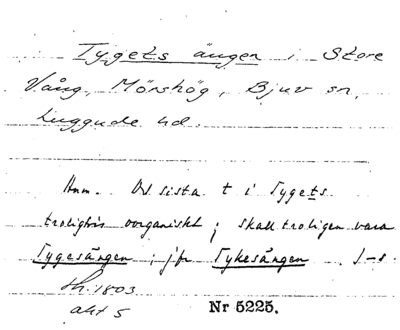 Tygets ängen i Store
Vång, Mörshög, Bjuv sn,
Luggude hd.
Anm. Det sista t i Tygets
troligtvis oorganiskt; skall troligen vara
Tygesängen; jfr Tykesängen. I-s.
Sh. 1803
akt 5
Nr 5225.